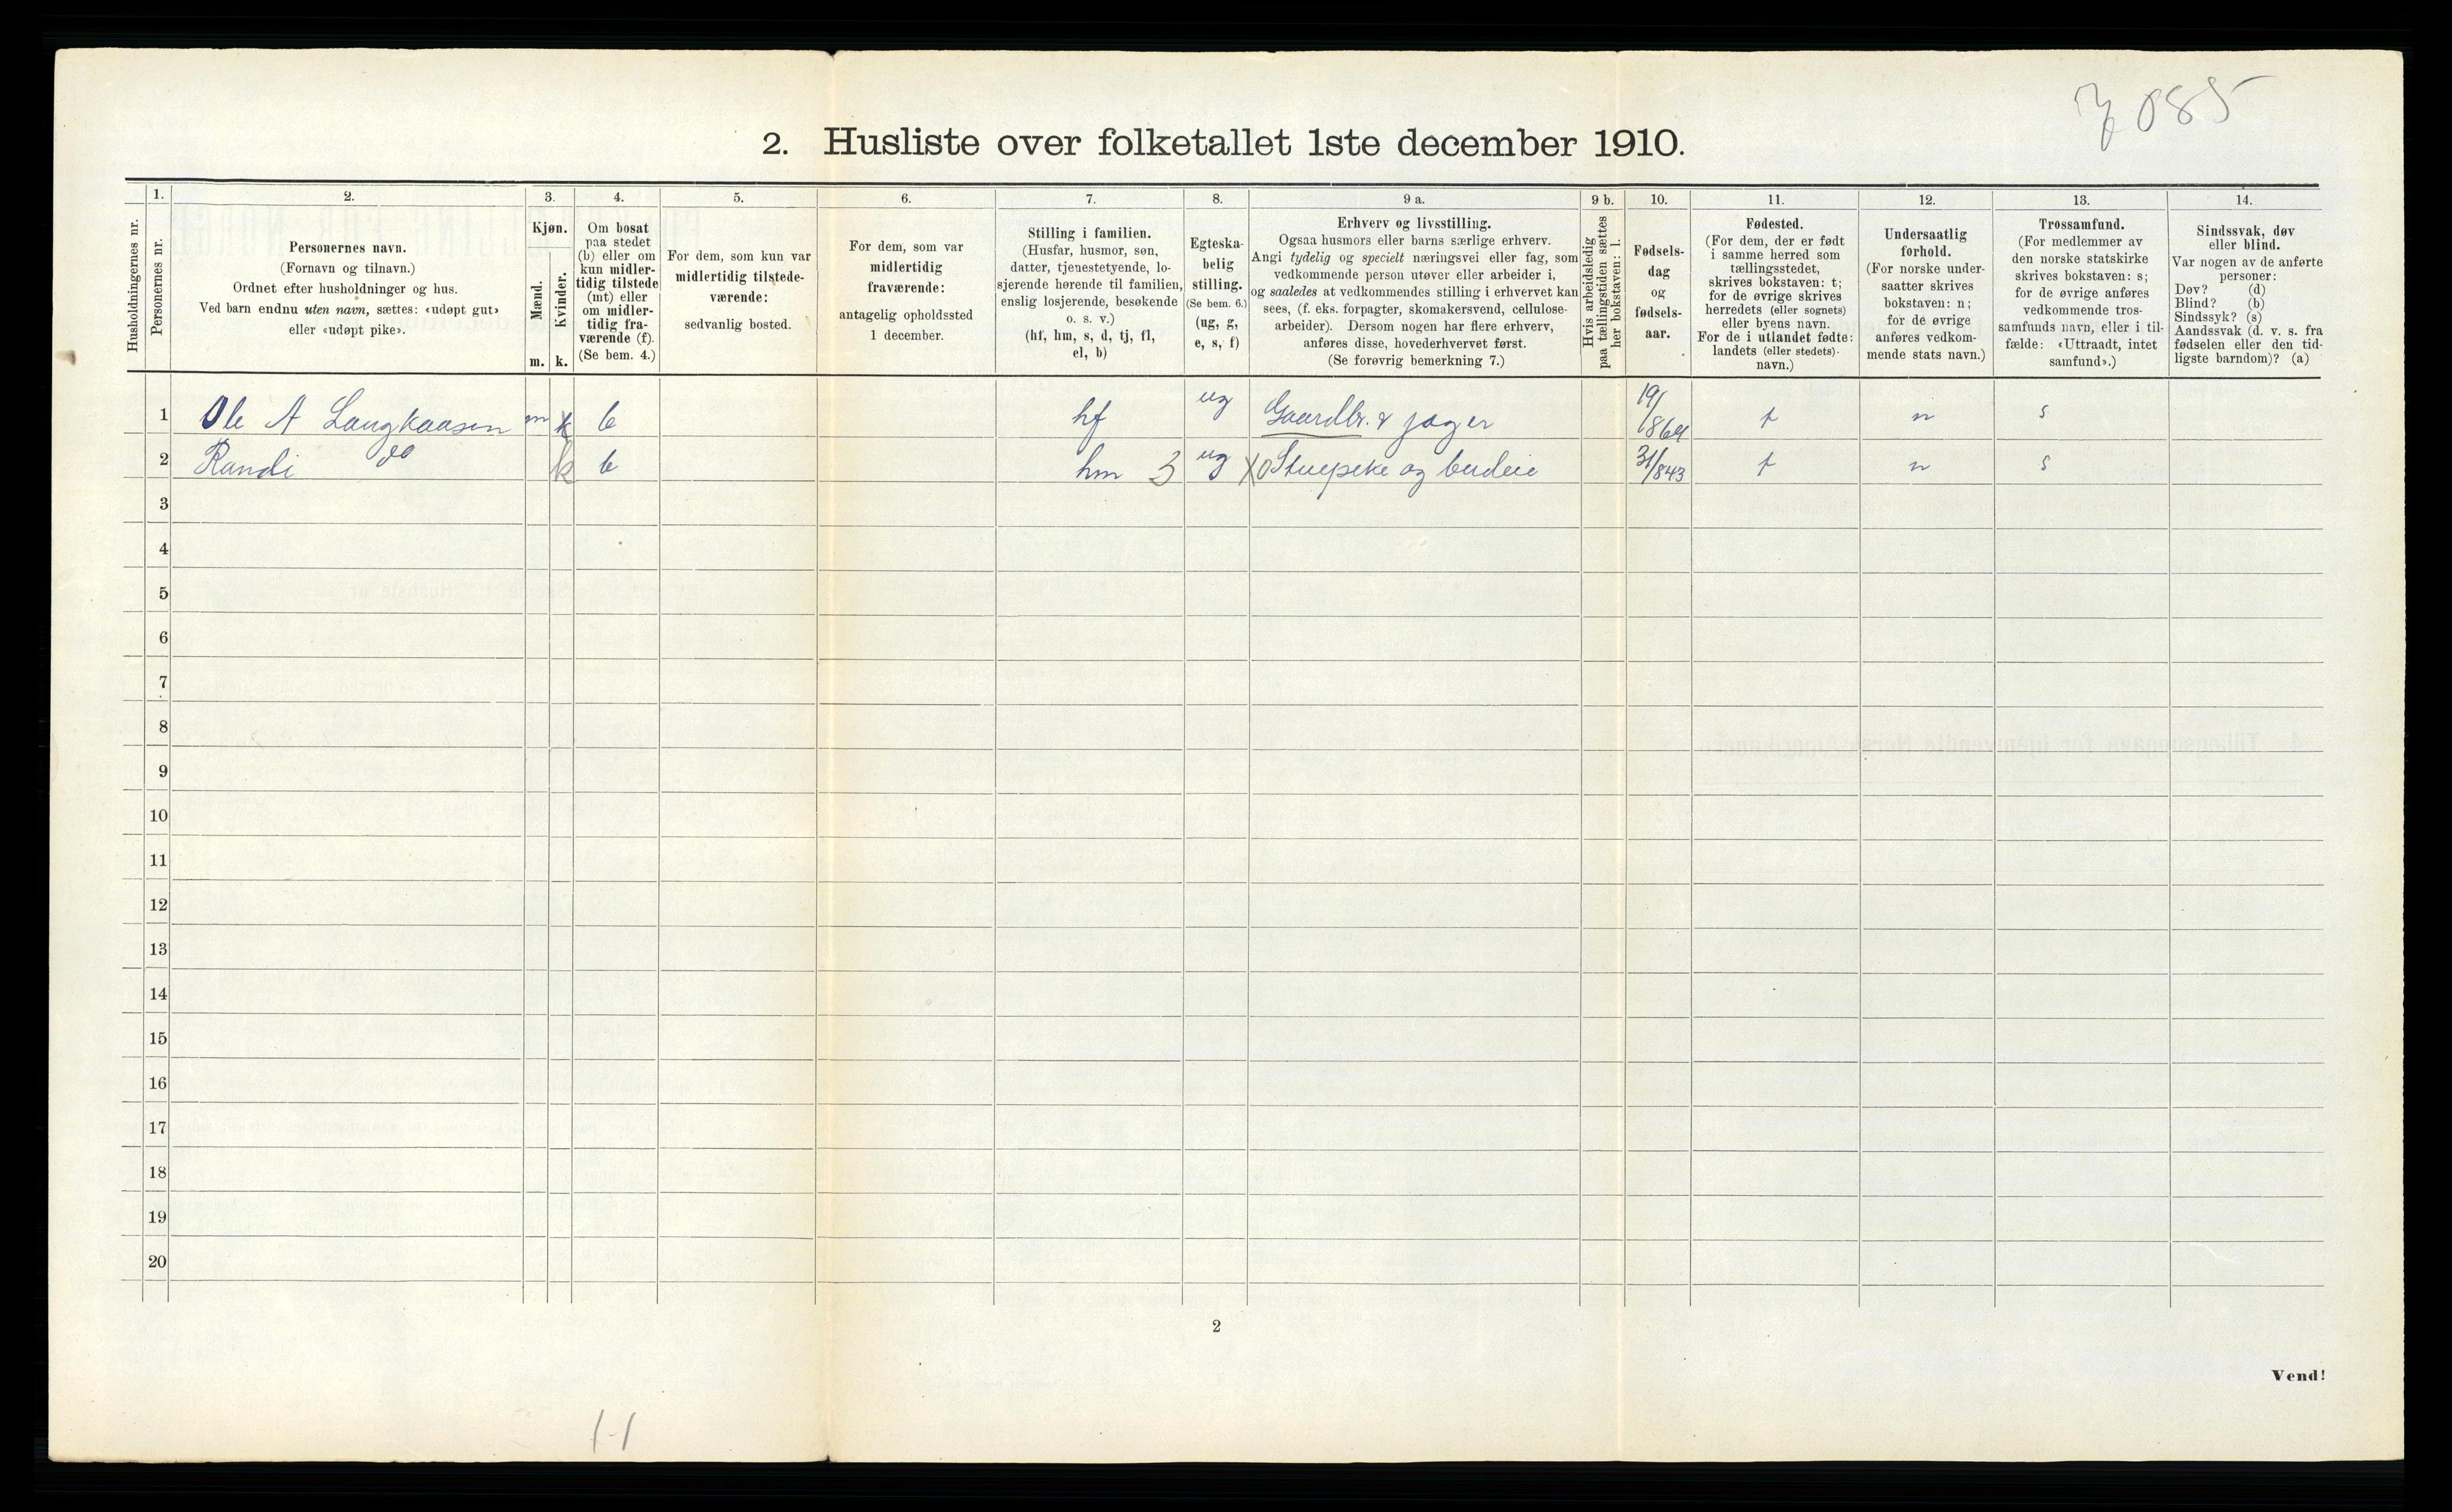 2. Husliste over folketallet 1ste december 1910.
Husholdningernes nr.
1.
Personernes nr.
2.
Personernes navn.
(Fornavn og tilnavn.)
Ordnet efter husholdninger og hus.
Ved barn endnu uten navn, sættes: «udøpt gut»
eller «udøpt pike».
3.
Kjøn.
Mænd.
Kvinder.
m. k.
4.
Om bosat
paa stedet
(b) eller om
kun midler-
tidig tilstede
(mt) eller
om midler-
tidig fra-
værende (f).
(Se bem. 4.)
5.
For dem, som kun var
midlertidig tilstede-
værende:
sedvanlig bosted.
6.
For dem, som var
midlertidig
fraværende:
antagelig opholdssted
1 december.
7.
Stilling i familien.
(Husfar, husmor, søn,
datter, tjenestetyende, lo-
sjerende hørende til familien,
enslig losjerende, besøkende
o. s. v.)
(hf, hm, s, d, tj, fl,
el, b)
8.
Egteska-
belig
stilling.
(Se bem. 6.)
(ug, g,
e, s, f)
9 a.
Erhverv og livsstilling.
Ogsaa husmors eller barns særlige erhverv.
Angi tydelig og specielt næringsvei eller fag, som
vedkommende person utøver eller arbeider i,
og saaledes at vedkommendes stilling i erhvervet kan
sees, (f. eks. forpagter, skomakersvend, cellulose-
arbeider). Dersom nogen har flere erhverv,
anføres disse, hovederhvervet først.
(Se forøvrig bemerkning 7.)
9 b.
Hvis arbeidsledig
paa tællingstiden sættes
her bokstaven: l.
10.
Fødsels-
dag
og
fødsels-
aar.
11.
Fødested.
(For dem, der er født
i samme herred som
tællingsstedet,
skrives bokstaven: t;
for de øvrige skrives
herredets (eller sognets)
eller byens navn.
For de i utlandet fødte:
landets (eller stedets)-
navn.)
12.
Undersaatlig
forhold.
(For norske under-
saatter skrives
bokstaven: n;
for de øvrige
anføres vedkom-
mende stats navn.)
13.
Trossamfund.
(For medlemmer av
den norske statskirke
skrives bokstaven: s;
for de øvrige anføres
vedkommende tros-
samfunds navn, eller i til-
fælde: «Uttraadt, intet
samfund».)
14.
Sindssvak, døv
eller blind.
Var nogen av de anførte
personer:
Døv? (d)
Blind? (b)
Sindssyk? (s)
Aandssvak (d. v. s. fra
fødselen eller den tid-
ligste barndom)? (a)
1 Ole A Langkaasen m k b hf ug Gaardbr. & jager 19/1 864 t n s
2 Randi do k b hm 3 ug X0 Stuepike og budeie 31/843 t n s
3
4
5
6
7
8
9
10
11
12
13
14
15
16
17
18
19
20
2
Vend!
1-1